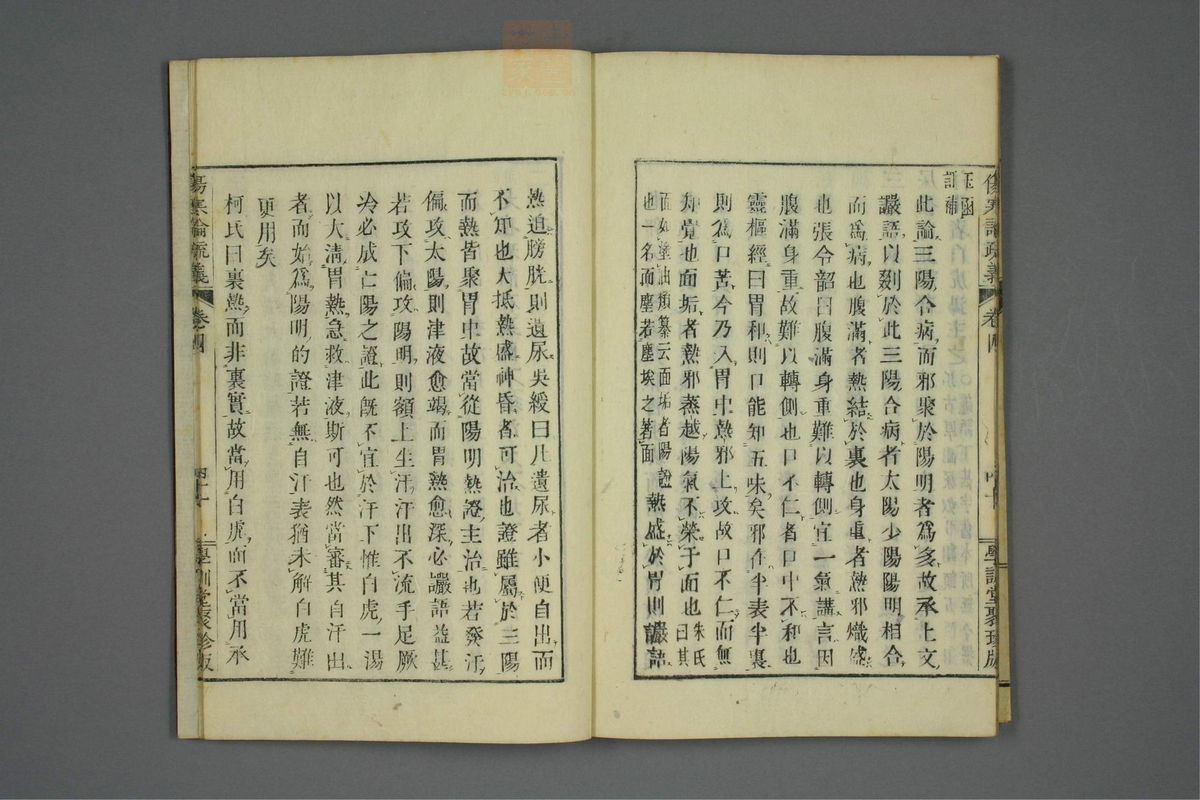 傷寒論疏義
卷四
學訓堂聚珍版
玉函
訂補
此論三陽合病而邪聚於陽明者爲多故承上文
讝語以剟於此三陽合病者太陽少陽陽明相合
而爲病也腹滿者熱結於裏也身重者熱邪熾盛
也張令韶曰腹滿身重難以轉側宜一氣講言因
腹滿身重故難以轉側也口不仁者口中不和也
靈樞經曰胃和則口能知五味矣邪在半表半裏
則爲口苦今乃入胃中熱邪上攻故口不仁而無
知覺也面垢者熱邪蒸越陽氣不榮于面也朱氏曰其
面如塗油類纂云面垢者陽證
也一名面塵若塵埃之著面熱盛於胃則讝語
熱迫膀胱則遺尿吳綬曰凡遺尿者小便自出而
不知也大抵熱盛神昏者可治也證雖屬於三陽
而熱皆聚胃中故當從陽明熱證主治也若發汗
偏攻太陽則津液愈竭而胃熱愈深必讝語益甚
若攻下偏攻陽明則額上生汗汗出不流手足厥
冷必成亡陽之證此既不宜於汗下惟白虎一湯
以大清胃熱急救津液斯可也然當審其自汗出
者而始爲陽明的證若無自汗表猶未解白虎難
更用矣
柯氏曰裏熱而非裏實故當用白虎而不當用承
傷寒論疏義
卷四
四十一
學訓堂聚珍版